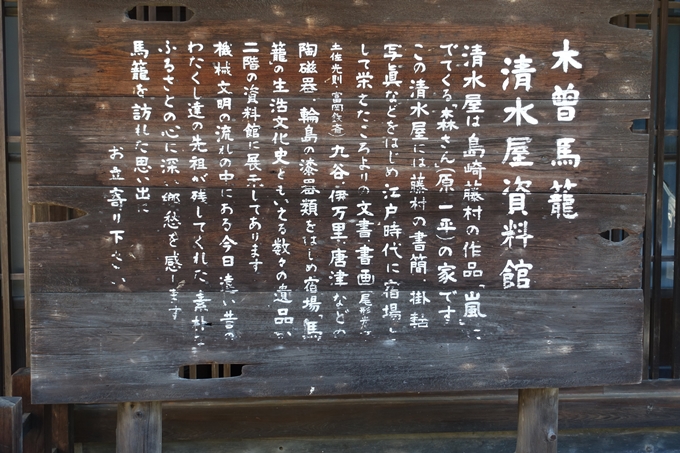 木曽馬籠
清水屋資料館
清水屋は島崎藤村の作品「嵐」に
でてくる「森さん(原一平)の家です
この清水屋には藤村の書簡、掛軸
写真などをはじめ江戸時代に宿場と
して栄えたころよりの文書書画(尾形
土佐光則、富岡鉄斎)九谷・伊万里、唐津などの
陶磁器、輪島の漆器類をはじめ宿場「馬
籠」の生活文化史ともいえる数々の遺品が
二階の資料館に展示してあります
機械文明の流れの中にある今日、遠い昔の
わたくし達の先祖が残してくれた、素朴な
ふるさとの心に深い郷愁を感じます
馬籠を訪れた思い出に
お立寄り下さい